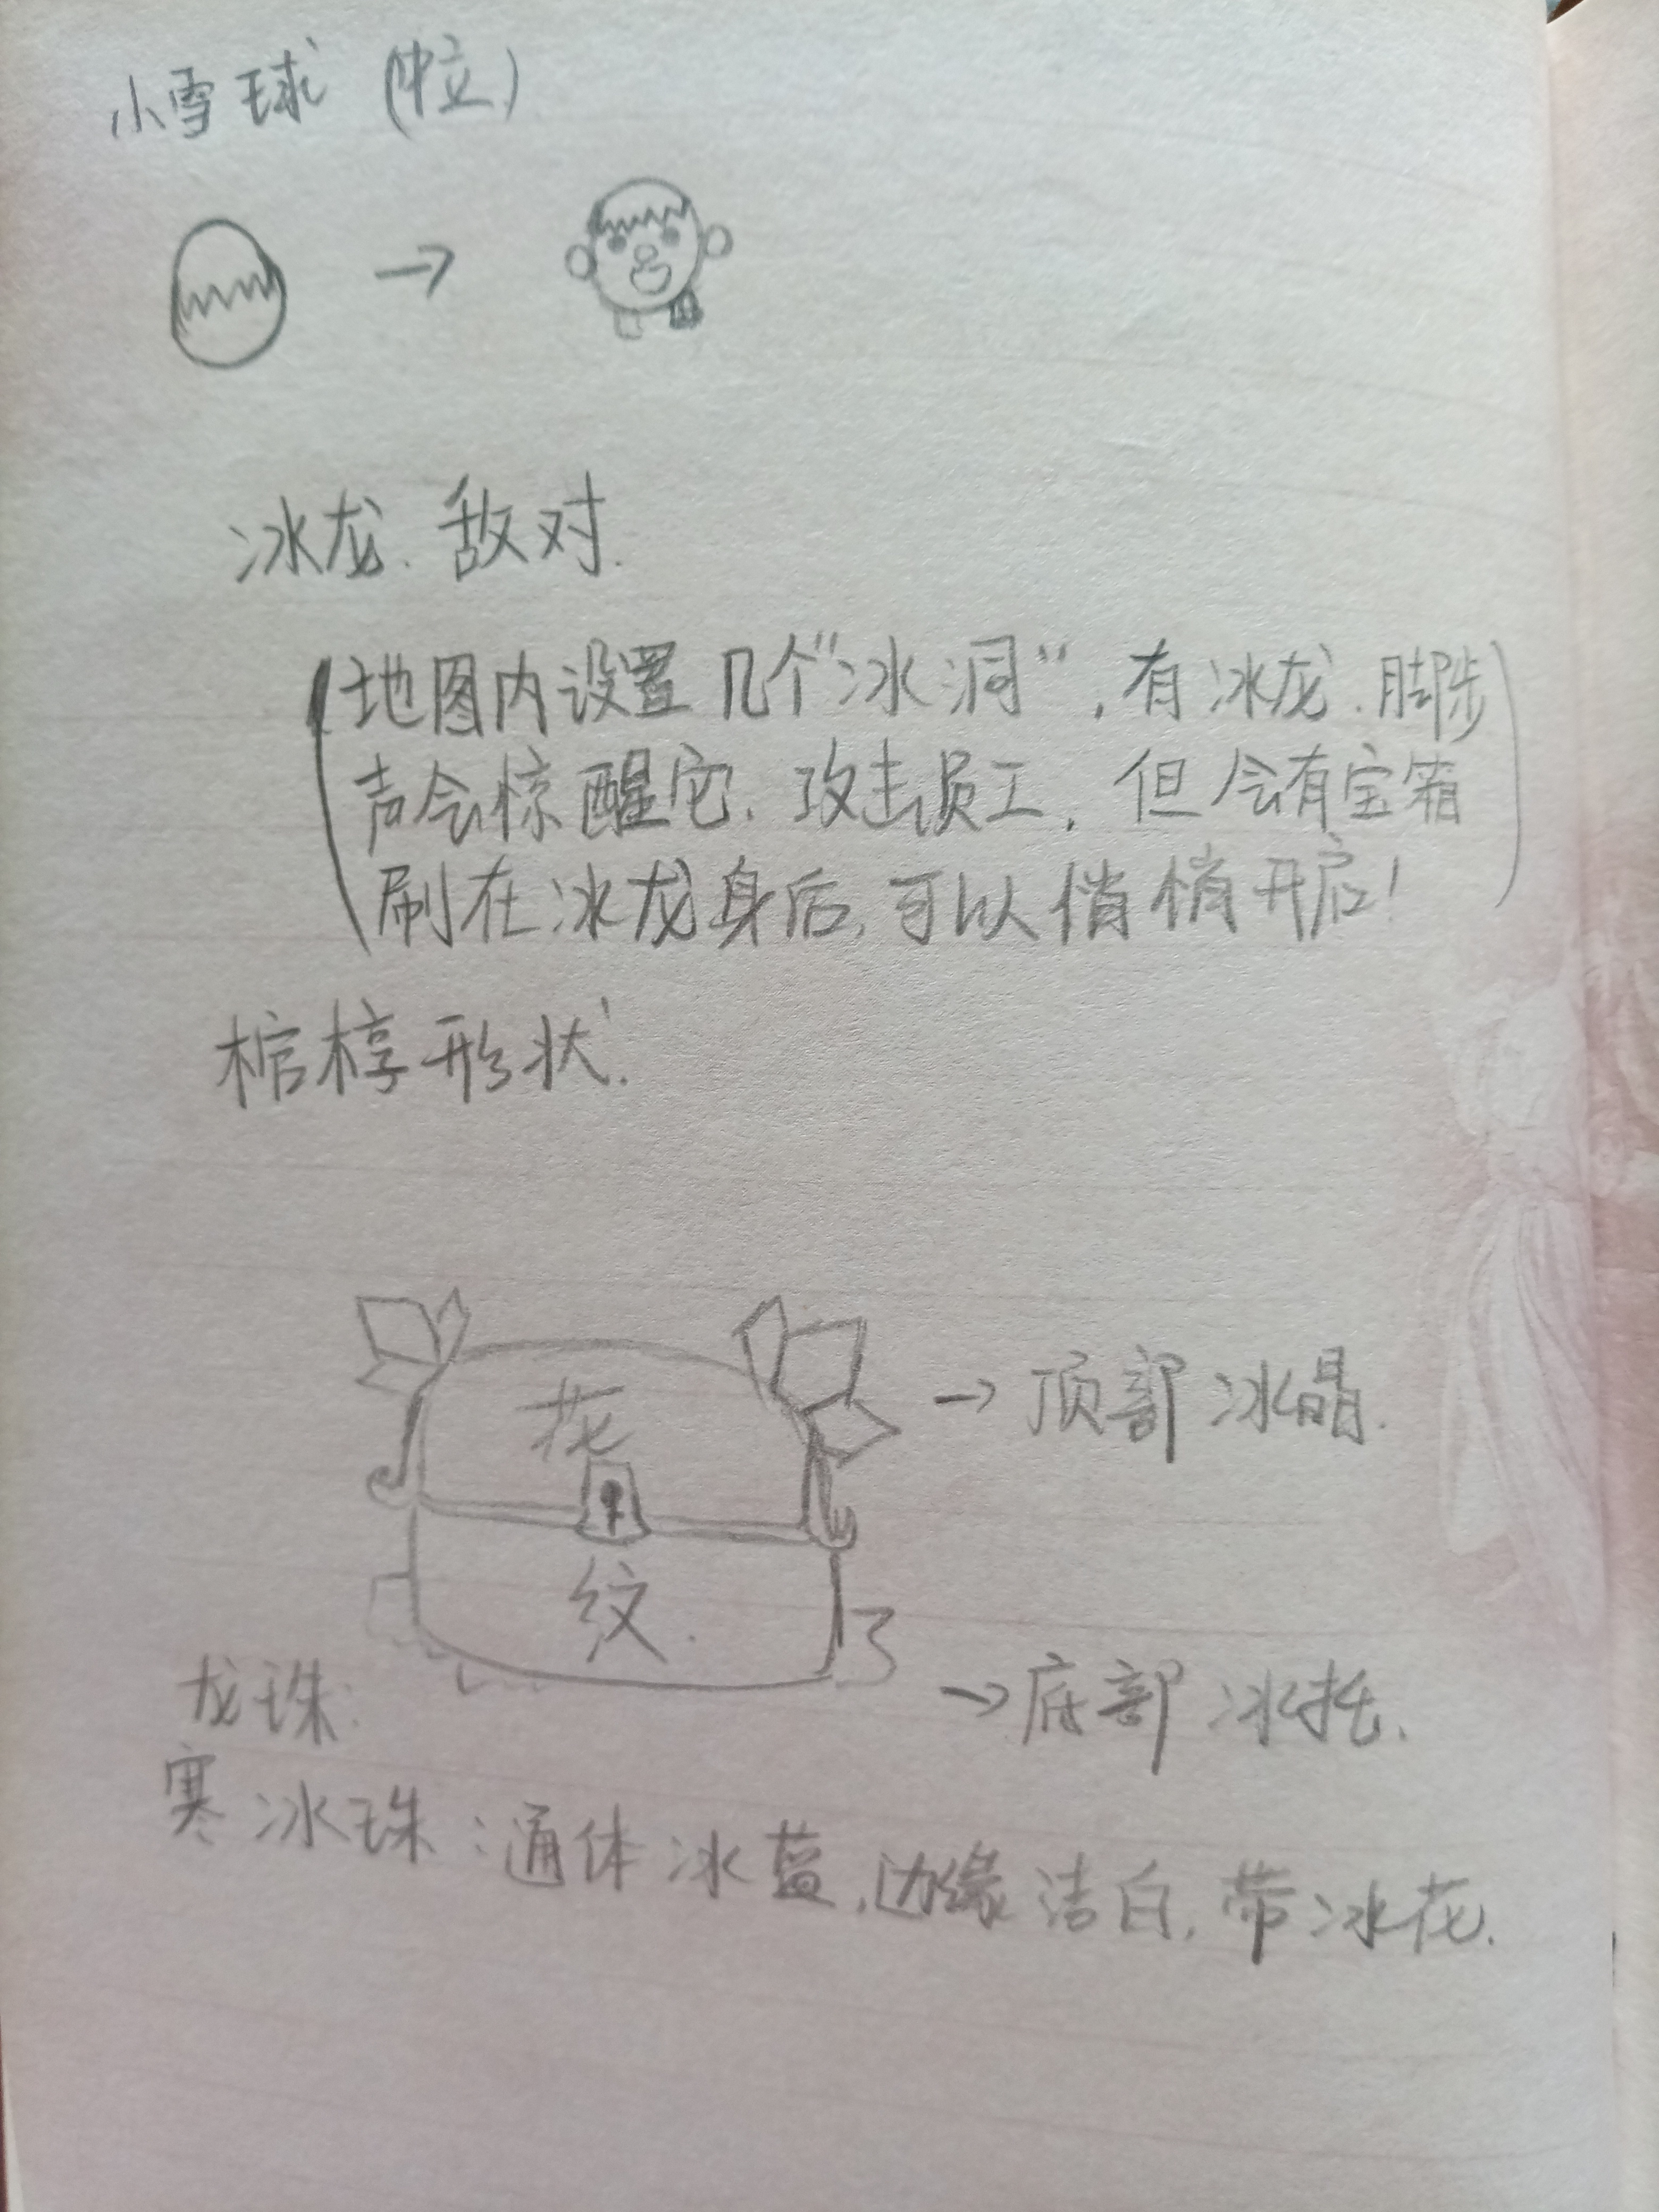 小雪球 (中立)
冰龙. 敌对.
(地图内设置几个"冰洞",有冰龙.脚步
声会惊醒它.攻击员工,但会有宝箱
刷在冰龙身后,可以悄悄开启!)
棺椁形状.
花
→顶部冰晶.
纹.
龙珠:
→底部冰托.
寒冰珠:通体冰蓝,边缘洁白,带冰花.